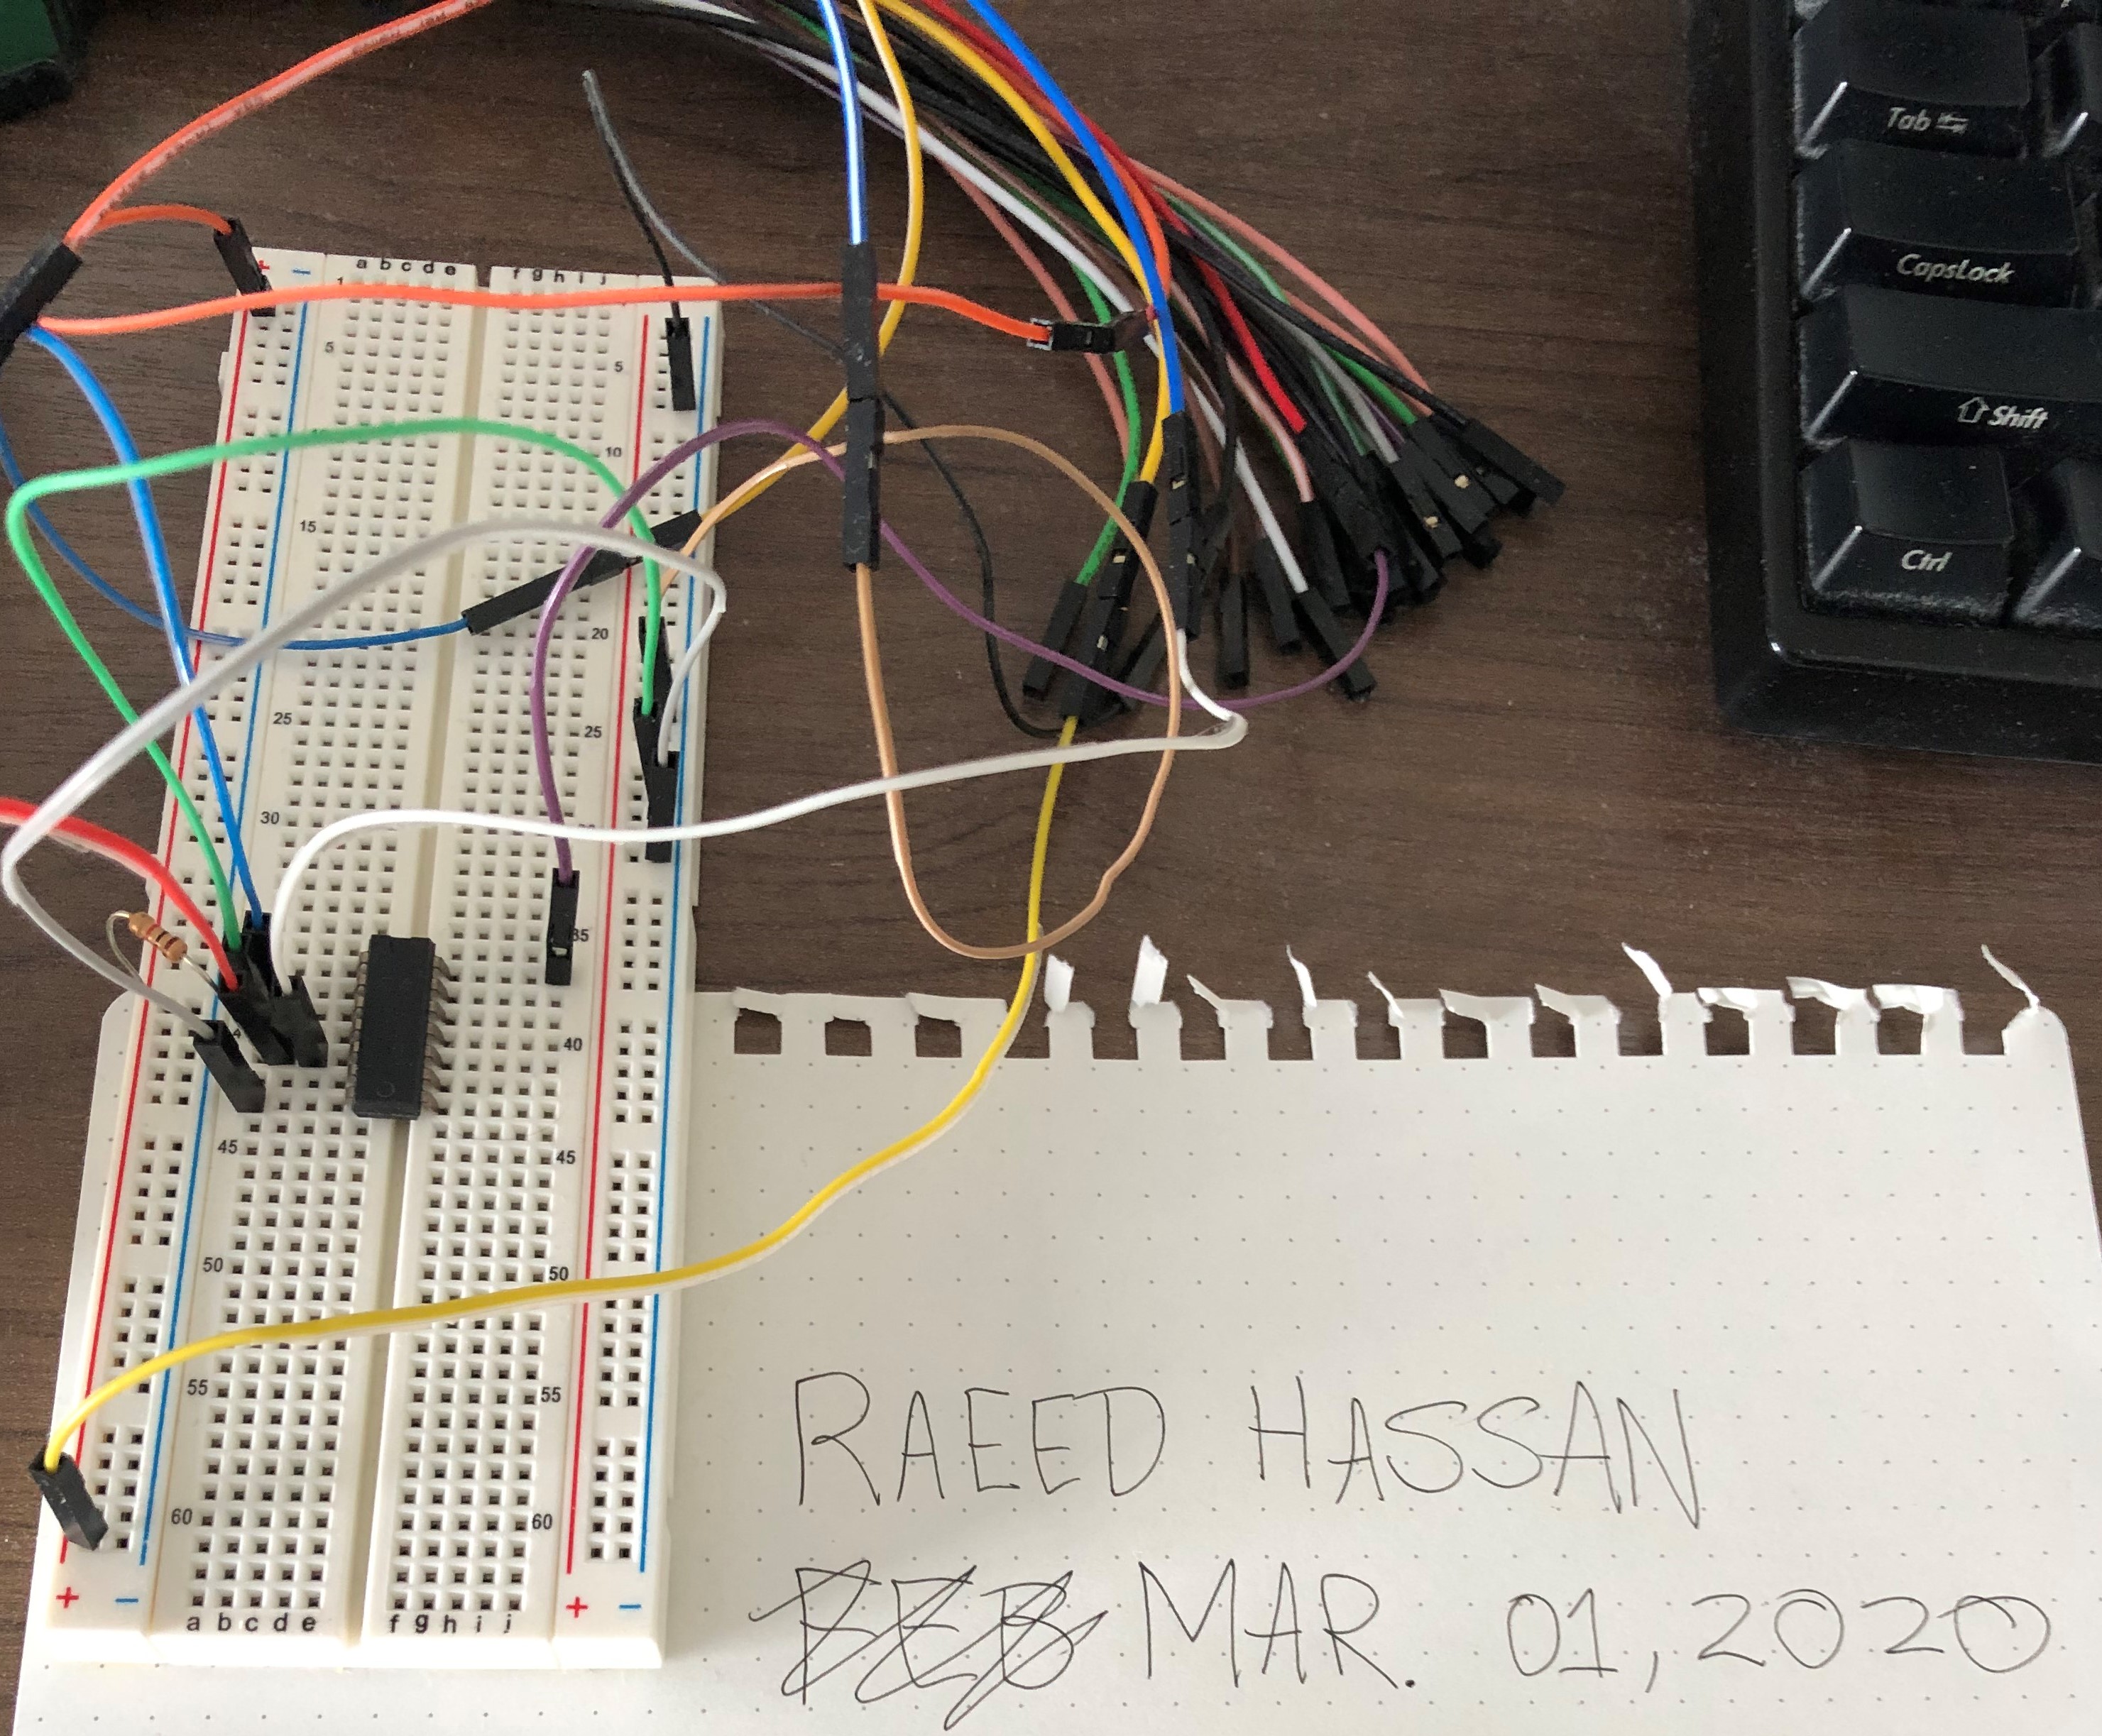 Tab
CapsLock
Shift
Ctrl
+ −
a b c d e f g h i j
1
5 5
10
15
20
25 25
30
35
40
45 45
50 50
55 55
60 60
+ − + −
a b c d e f g h i j
RAEED HASSAN
FEB MAR. 01, 2020